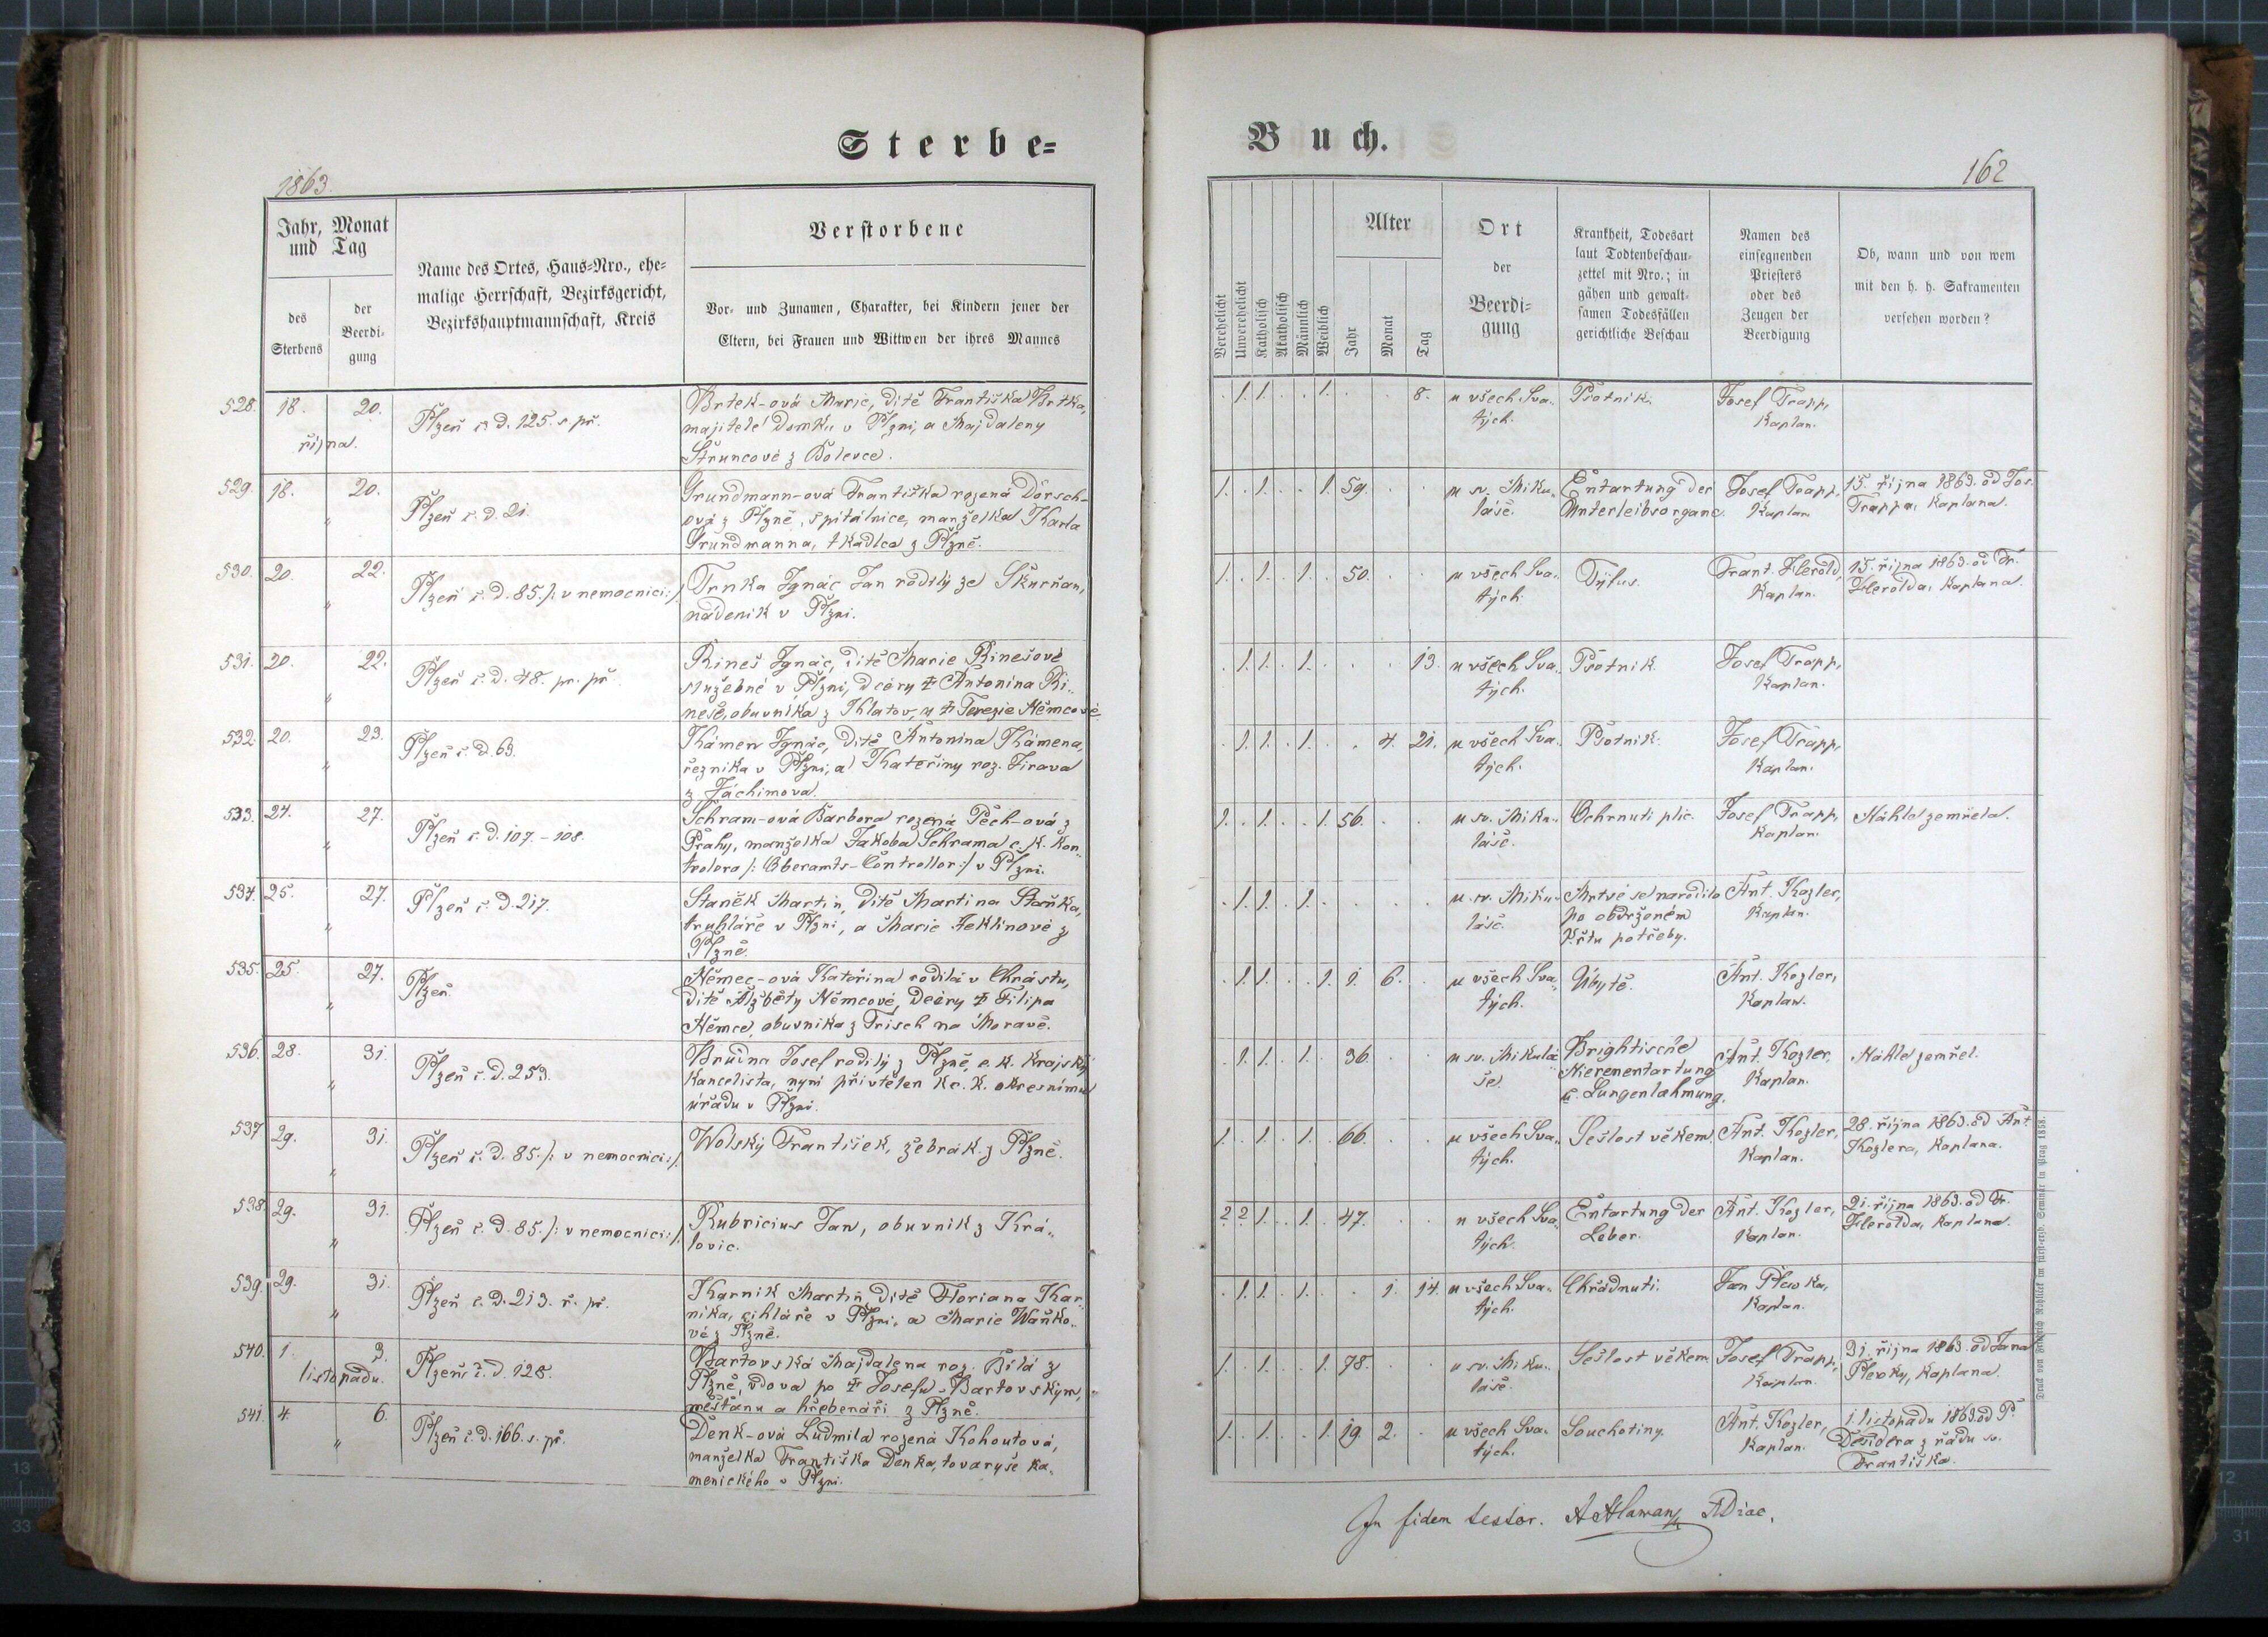 Sterbe=
1863.
Jahr, Monat
und Tag
des
Sterbens
der
Beerdi-
gung
Name des Ortes, Haus=Nro., ehe-
malige Herrschaft, Bezirksgericht,
Bezirkshauptmannschaft, Kreis
Verstorbene
Vor- und Zunamen, Charakter, bei Kindern jener der
Eltern, bei Frauen und Wittwen der ihres Mannes
528. 18. 20.
října.
Plzeň č. d. 125. s př.
Brtek-ová Marie, dítě Františka Brtka,
majitele domku v Plzni, a Majdaleny
Štruncové z Bolevce.
529. 18. 20.
"
Plzeň č. d. 21.
Grundmann-ová Františka rozená Dörsch-
ová z Plzně, špitálnice, manželka Karla
Grundmanna, tkadlce z Plzně.
530. 20. 22.
"
Plzeň č. d. 85. /: v nemocnici :/
Trnka Ignác Jan rodilý ze Skurňan,
nádeník v Plzni.
531. 20. 22.
"
Plzeň č. d. 48. pr. př.
Rineš Ignác, dítě Marie Rinešové
služebné v Plzni, dcery ‡ Antonína Ri-
neše, obuvníka z Klatov, u ‡ Terezie Němcové.
532. 20. 23.
"
Plzeň č. d. 63.
Kámen Ignác, dítě Antonína Kámena,
řezníka v Plzni, a Kateřiny roz. Jirava
z Jáchimova.
533. 24. 27.
"
Plzeň č. d. 107.-108.
Schram-ová Barbora rozená Pech-ová z
Prahy, manželka Jakoba Schrama c. k. kon-
trolora /: Oberamts-Controllor :/ v Plzni.
534. 25. 27.
"
Plzeň č. d. 217.
Staněk Martin, dítě Martina Staňka,
truhláře v Plzni, a Marie Teklinové z
Plzně.
535. 25. 27.
"
Plzeň.
Němec-ová Kateřina rodilá v Chrástu,
dítě Alžběty Němcové, dcery ‡ Filipa
Němce, obuvníka z Trisch na Moravě.
536. 28. 31.
"
Plzeň č. d. 253.
Brudna Josef rodilý z Plzně, c. k. krajský
kancelista, nyní přivtělen k c. k. okresnímu
úřadu v Plzni.
537 29. 31.
"
Plzeň č. d. 85. /: v nemocnici :/.
Wolský František, žebrák z Plzně.
538. 29. 31.
"
Plzeň č. d. 85. /: v nemocnici :/
Rubricius Jan, obuvník z Krá-
lovic.
539. 29. 31.
"
Plzeň č. d. 213. ř. př.
Karnik Martin dítě Floriana Kar-
nika, cihláře v Plzni, a Marie Waňko-
vé z Plzně.
540. 1. 3.
listopadu.
Plzeň, č. d. 128.
Bartovská Majdalena roz. Bílá z
Plzně, vdova po ‡ Josefu Bartovským,
měšťanu a hřebenáři z Plzně.
541. 4. 6.
"
Plzeň č. d. 166. s. př.
Denk-ová Ludmila rozená Kohoutová,
manželka Františka Denka, tovaryše ka-
menického v Plzni.
Buch.
162
Verehelicht
Unverehelicht
Katholisch
Akatholisch
Männlich
Weiblich
Alter
Jahr
Monat
Tag
Ort
der
Beerdi-
gung
Krankheit, Todesart
laut Todtenbeschau-
zettel mit Nro.; in
gähen und gewalt-
samen Todesfällen
gerichtliche Beschau
Namen des
einsegnenden
Priesters
oder des
Zeugen der
Beerdigung
Ob, wann und von wem
mit den h. h. Sakramenten
versehen worden?
. 1. 1. . . 1. . . 8. u všech Sva-
tých.
Psotník.
Josef Trapp,
Kaplan.
1. . 1. . . 1. 59. . . u sv. Miku-
láše.
Entartung der
Unterleibsorgane.
Josef Trapp,
Kaplan
15. října 1863. od Jos.
Trappa, Kaplana.
1. . 1. . 1. . 50. . . u všech Sva-
tých.
Tyfus.
Frant. Herold,
Kaplan.
15. října 1863. od Fr.
Herolda, Kaplana.
. 1. 1. . 1. . . . 13. u všech Sva-
tých.
Psotník.
Josef Trapp,
Kaplan.
. 1. 1. . 1. . . 4. 21. u všech Sva-
tých.
Psotník.
Josef Trapp,
Kaplan.
1. . 1. . . 1. 56. . . u sv. Miku-
láše.
Ochrnutí plic.
Josef Trapp,
Kaplan.
Náhle zemřela.
. 1. 1. . 1. . . . . u sv. Miku-
láše.
Mrtvé se narodilo
po obdrženém
křtu potřeby.
Ant. Kozler,
Kaplan.
. 1. 1. . . 1. 1. 6. . u všech Sva-
tých.
Úbytě.
Ant. Kozler,
Kaplan.
. 1. 1. . 1. . 36. . . u sv. Mikulá-
še.
Brightische
Nierenentartung
u. Lungenlähmung.
Ant. Kozler,
Kaplan.
Náhle zemřel.
1. . 1. . 1. . 66. . . u všech Sva-
tých.
Sešlost věkem.
Ant. Kozler,
Kaplan.
28. října 1863. od Ant.
Kozlera, Kaplana.
? ? 1. . 1. . 47. . . u všech Sva-
tých.
Entartung der
Leber.
Ant. Kozler,
Kaplan.
21. října 1863. od Fr.
Herolda, Kaplana.
. 1. 1. . 1. . . 1. 14. u všech Sva-
tých.
Chřadnutí.
Jan Plewka,
Kaplan.
1. . 1. . . 1. 78. . . u sv. Miku-
láše.
Sešlost věkem.
Josef Trapp,
Kaplan.
31. října 1863. od Jana
Plevky, Kaplana.
1. . 1. . . 1. 19. 2. . u všech Sva-
tých.
Souchotiny.
Ant. Kozler,
Kaplan.
1. listopadu 1863. od P.
Desidera z řádu sv.
Františka.
In fidem testor.
Druck von Friedrich Rohliček im fürst-erzb. Seminär in Prag 1858.